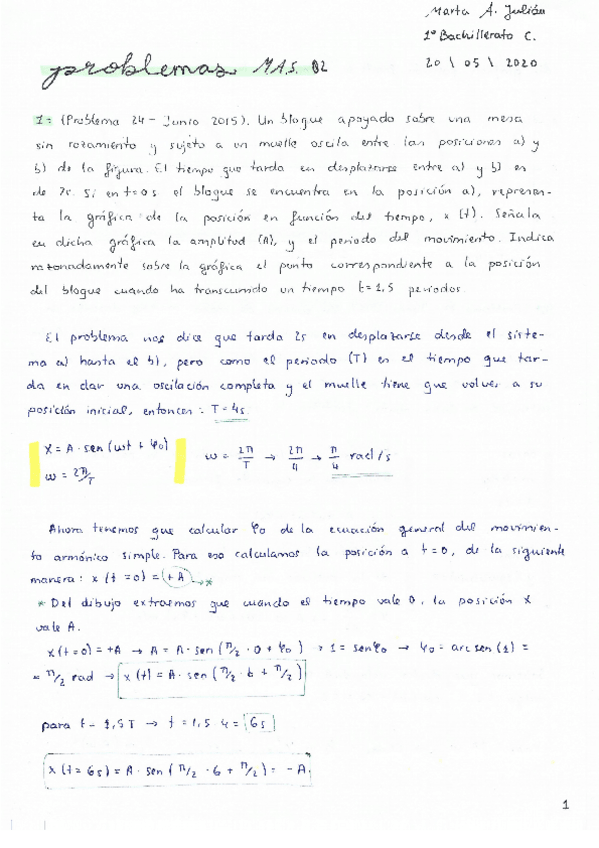 Marta A. Julián
1º Bachillerato C.
problemas M.A.S. 02
20 \ 05 \ 2020
1= (Problema 24 - Junio 2015). Un bloque apoyado sobre una mesa
sin rozamiento y sujeto a un muelle oscila entre las posiciones a) y
b) de la figura. El tiempo que tarda en desplazarse entre a) y b) es
de 2s. Si en t=0s el bloque se encuentra en la posición a), represen-
ta la gráfica de la posición en función del tiempo, x (t). Señala
en dicha gráfica la amplitud (A), y el periodo del movimiento. Indica
razonadamente sobre la gráfica el punto correspondiente a la posición
del bloque cuando ha transcurrido un tiempo t=1,5 periodos.
El problema nos dice que tarda 2s en desplazarse desde el siste-
ma a) hasta el b), pero como el periodo (T) es el tiempo que tar-
da en dar una oscilación completa y el muelle tiene que volver a su
posición inicial, entonces: T=4s.
X = A · sen (ωt + φ0)
ω = 2π/T
ω = 2π/T → 2π/4 → π/4 rad/s
Ahora tenemos que calcular φ0 de la ecuación general del movimien-
to armónico simple. Para eso calculamos la posición a t=0, de la siguiente
manera: x (t =0) = +A →*
* Del dibujo extraemos que cuando el tiempo vale 0, la posición x
vale A.
x (t=0) = +A → A = A · sen (π/2 · 0 + φ0) = 1 = senφ0 → φ0 = arc sen (1) =
= π/2 rad → x (t) = A · sen (π/2 · t + π/2)
para t = 1,5 T → t = 1,5 · 4 = 6s
x (t = 6s) = A · sen (π/2 · 6 + π/2) = -A
1